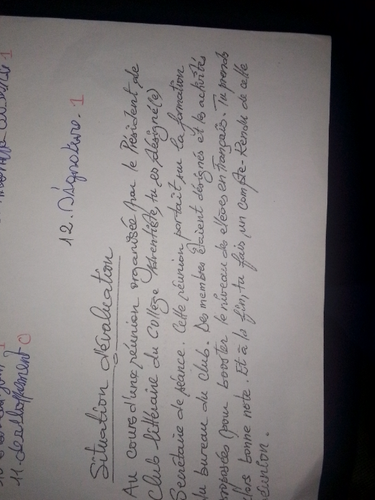 12. Signature. 1
11. Développement 0
Situation d'évaluation
Au cours d'une réunion organisée par le Président de
Club littéraire du collège, tu es désigné(e)
Secrétaire de séance. Cette réunion portait sur la formation
du bureau du club. Des membres étaient désignés et les activités
proposées pour booster le niveau des élèves en français. Tu prends
alors bonne note. Et à la fin, tu fais un compte-Rendu de cette
réunion.